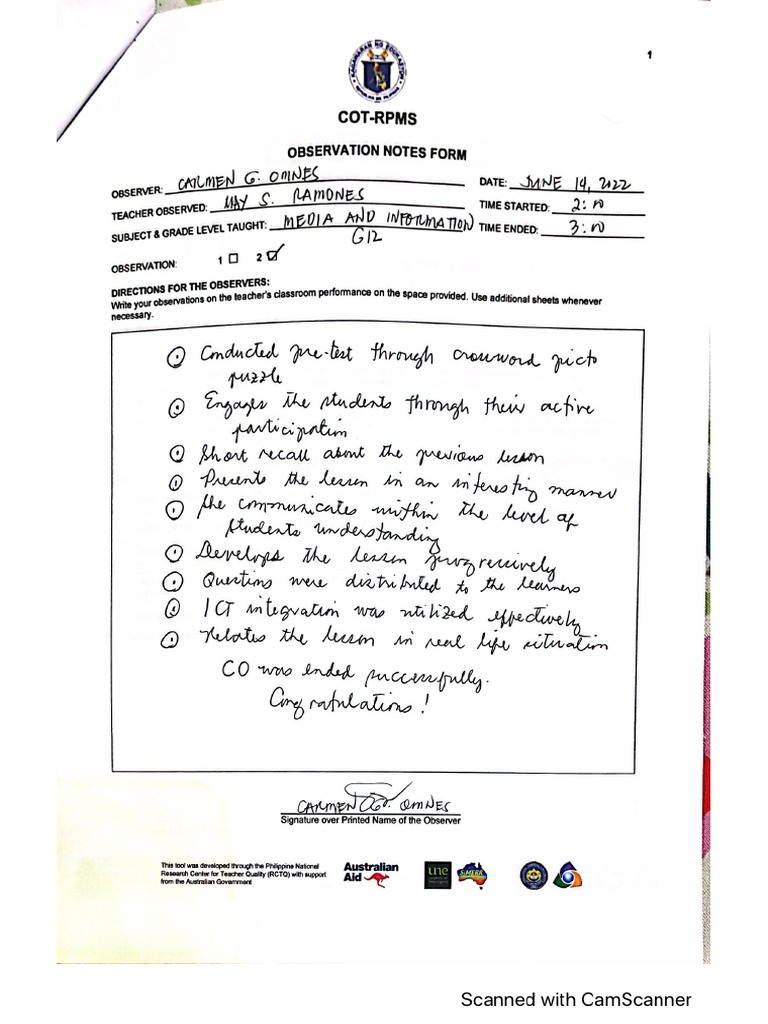 1
KAGAWARAN NG EDUKASYON
REPUBLIKA NG PILIPINAS
COT-RPMS
OBSERVATION NOTES FORM
OBSERVER: CARMEN G. OMNES DATE: JUNE 14, 2022
TEACHER OBSERVED: MAY S. RAMONES TIME STARTED: 2:00
SUBJECT & GRADE LEVEL TAUGHT: MEDIA AND INFORMATION TIME ENDED: 3:00
G12
OBSERVATION: 1 ☐ 2 ☑
DIRECTIONS FOR THE OBSERVERS:
Write your observations on the teacher's classroom performance on the space provided. Use additional sheets whenever
necessary.
Conducted pre-test through crossword picto
puzzle
Engages the students through their active
participation
Short recall about the previous lesson
Presents the lesson in an interesting manner
She communicates within the level of
students understanding
Develops the lesson progressively
Questions were distributed to the learners
ICT integration was utilized effectively
Relates the lesson in real life situation
CO was ended successfully.
Congratulations!
CARMEN G. OMNES
Signature over Printed Name of the Observer
This tool was developed through the Philippine National
Research Center for Teacher Quality (RCTQ) with support
from the Australian Government
Australian
Aid
une
SiMERR
Scanned with CamScanner